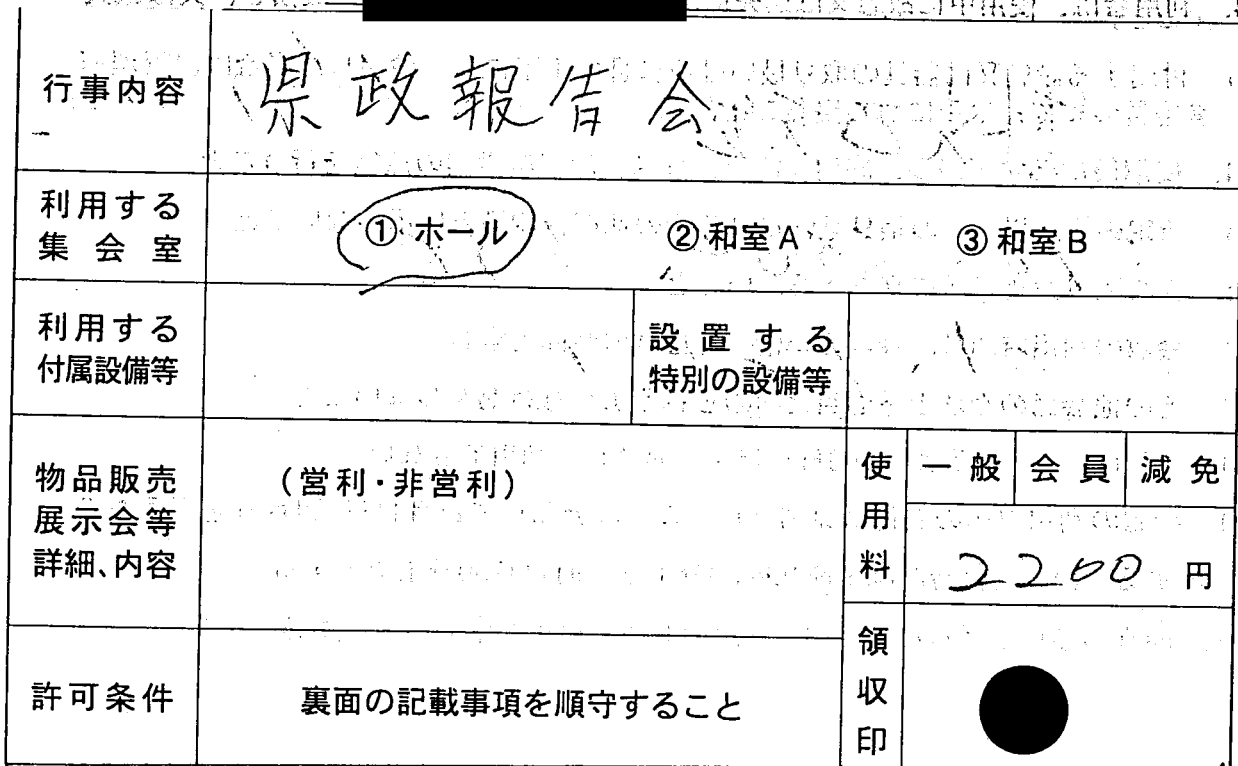 行事内容
県政報告会
利用する
集会室
① ホール
② 和室A
③ 和室B
利用する
付属設備等
設置する
特別の設備等
物品販売
展示会等
詳細、内容
(営利・非営利)
使用料
一般
会員
減免
2200円
許可条件
裏面の記載事項を順守すること
領収印